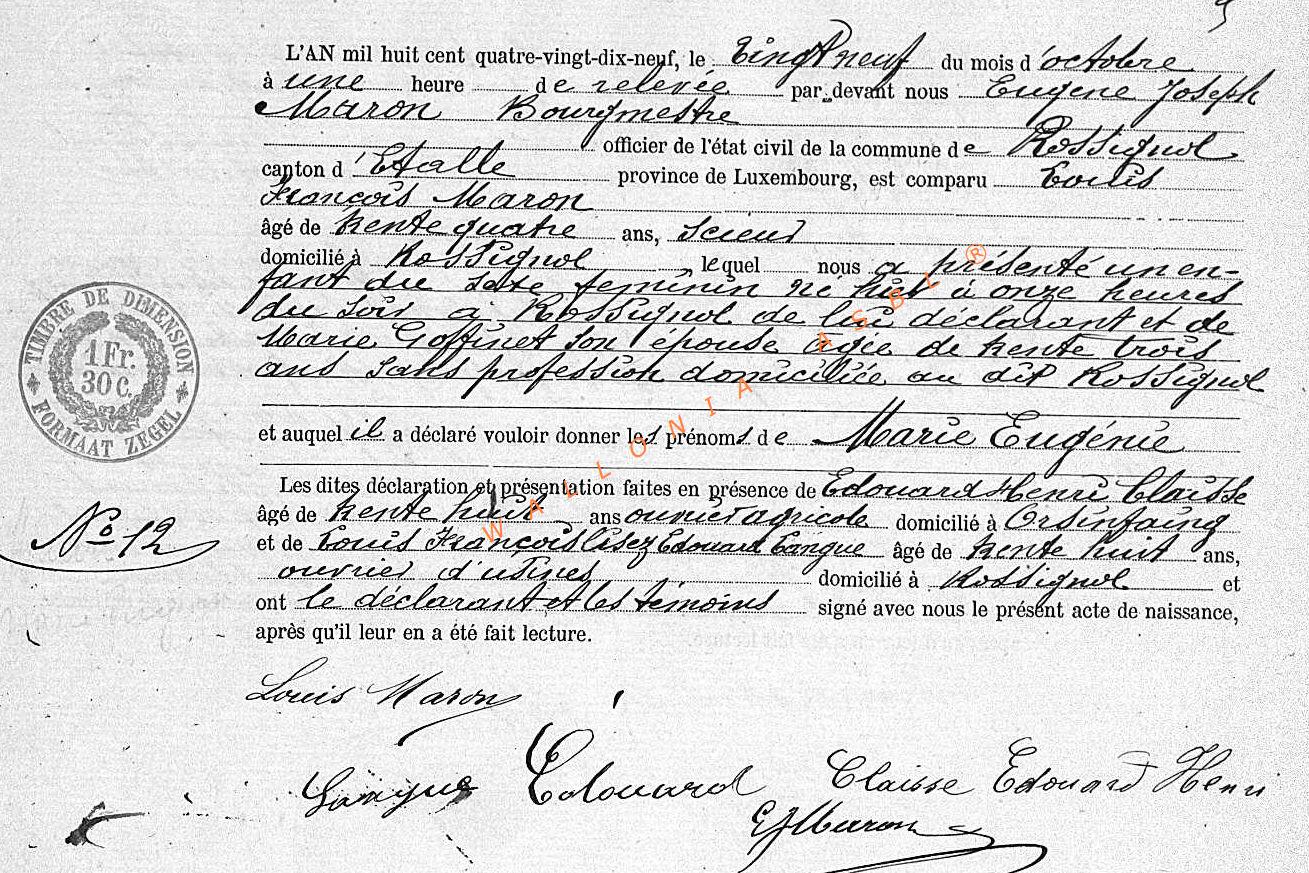 L'AN mil huit cent quatre-vingt-dix-neuf, le vingt neuf du mois d'octobre
à une heure de relevée par devant nous Eugène Joseph
Maron Bourgmestre
officier de l'état civil de la commune de Rossignol
canton d'Etalle province de Luxembourg, est comparu Louis
François Maron
âgé de trente quatre ans, scieur
domicilié à Rossignol lequel nous a présenté un en-
fant du sexe feminin né hier à onze heures
du soir à Rossignol de lui déclarant et de
Marie Goffinet son épouse agée de trente trois
ans sans profession domiciliée au dit Rossignol
et auquel il a déclaré vouloir donner les prénoms de Marie Eugénie
Les dites déclaration et présentation faites en présence de Edouard Henri Claisse
âgé de trente huit ans ouvrier agricole domicilié à Orsinfaing
et de Louis François lisez Edouard Gangue âgé de trente huit ans,
ouvrier d'usines domicilié à Rossignol et
ont le déclarant et les témoins signé avec nous le présent acte de naissance,
après qu'il leur en a été fait lecture.
TIMBRE DE DIMENSION
1 Fr.
30 C.
FORMAAT ZEGEL
No 12
WALLONIA ASBL ®
Louis Maron
Edouard
Claisse Edouard Henri
EJMaron